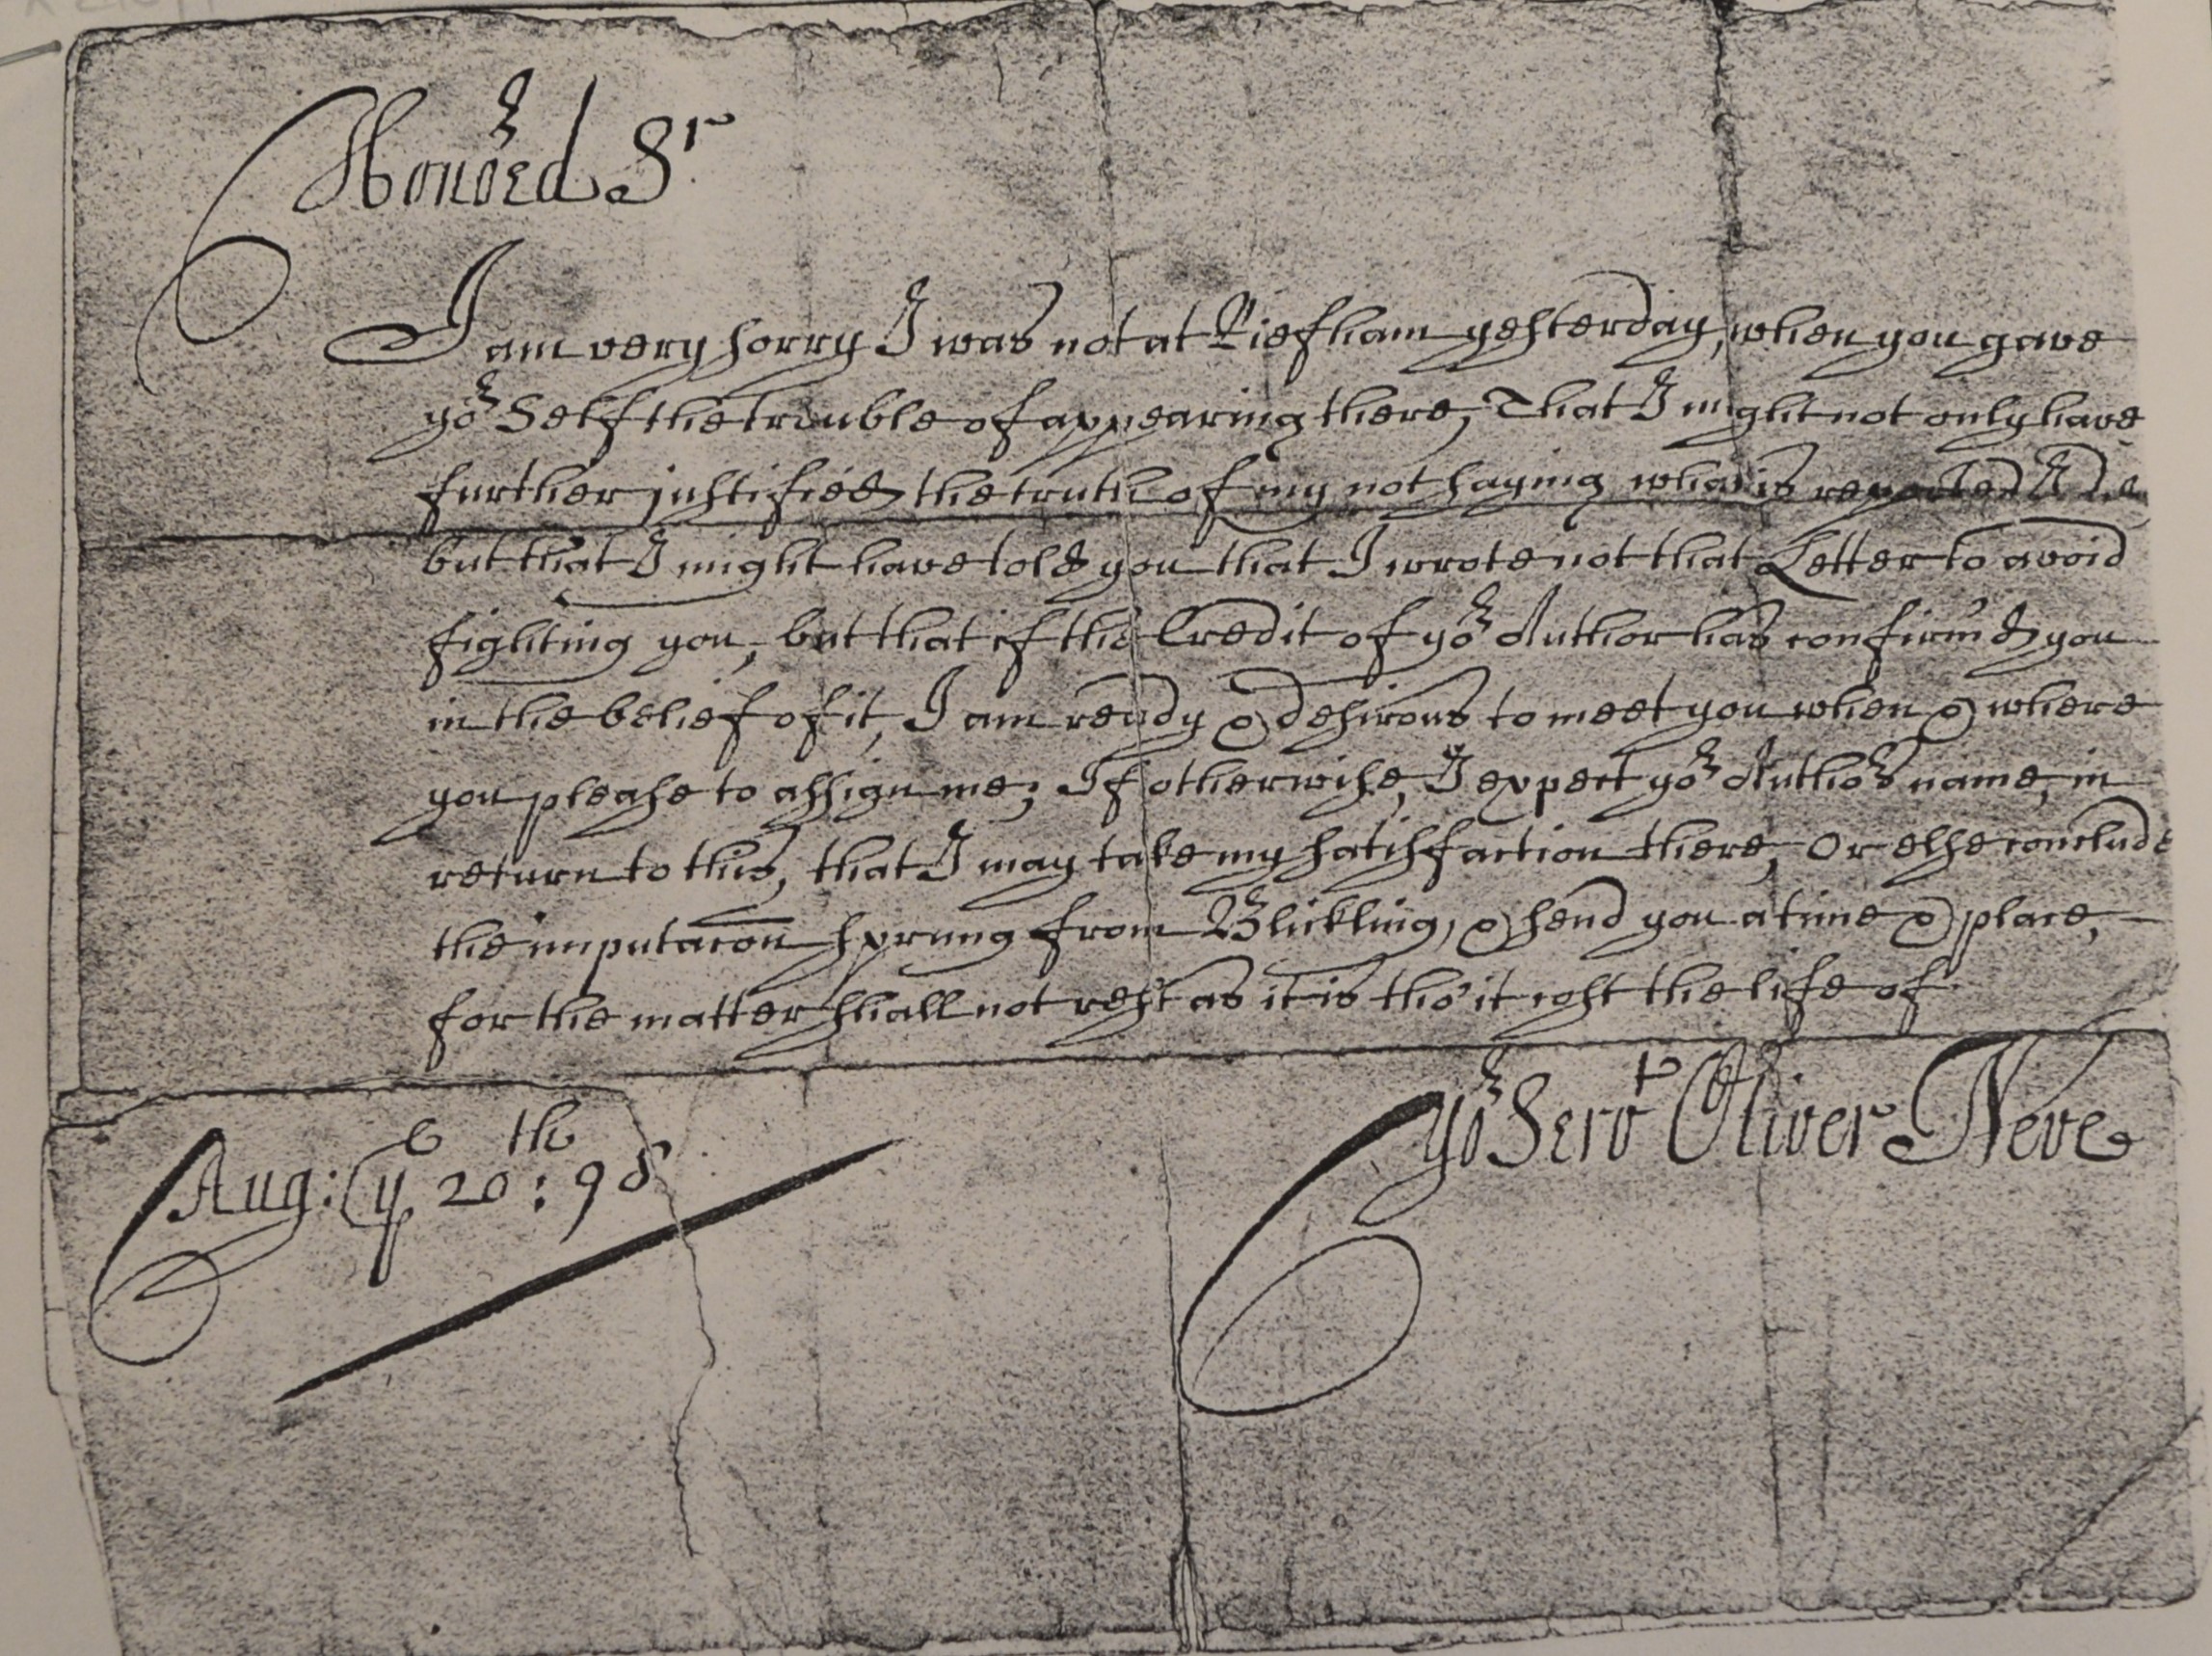 Honoᵘʳed Sʳ
I am very sorry I was not at Riefham yesterday, when you gave
yoʳ Self the trouble of appearing there, That I might not only have
further justified the truth of my not saying what is reported I did
but that I might have told you that I wrote not that Letter to avoid
fighting you, but that if the Credit of yoʳ Author has confirm'd you
in the belief of it, I am ready & desirous to meet you when & where
you please to assign me; If otherwise, I expect yoʳ Authoʳs name, in
return to this, that I may take my satisfaction there, Or else conclude
the imputacon sprung from Blickling, & send you a time & place,
for the matter shall not rest as it is tho' it cost the life of
yoʳ Servᵗ Oliver Neve
Aug: yᵉ 20ᵗʰ: 98